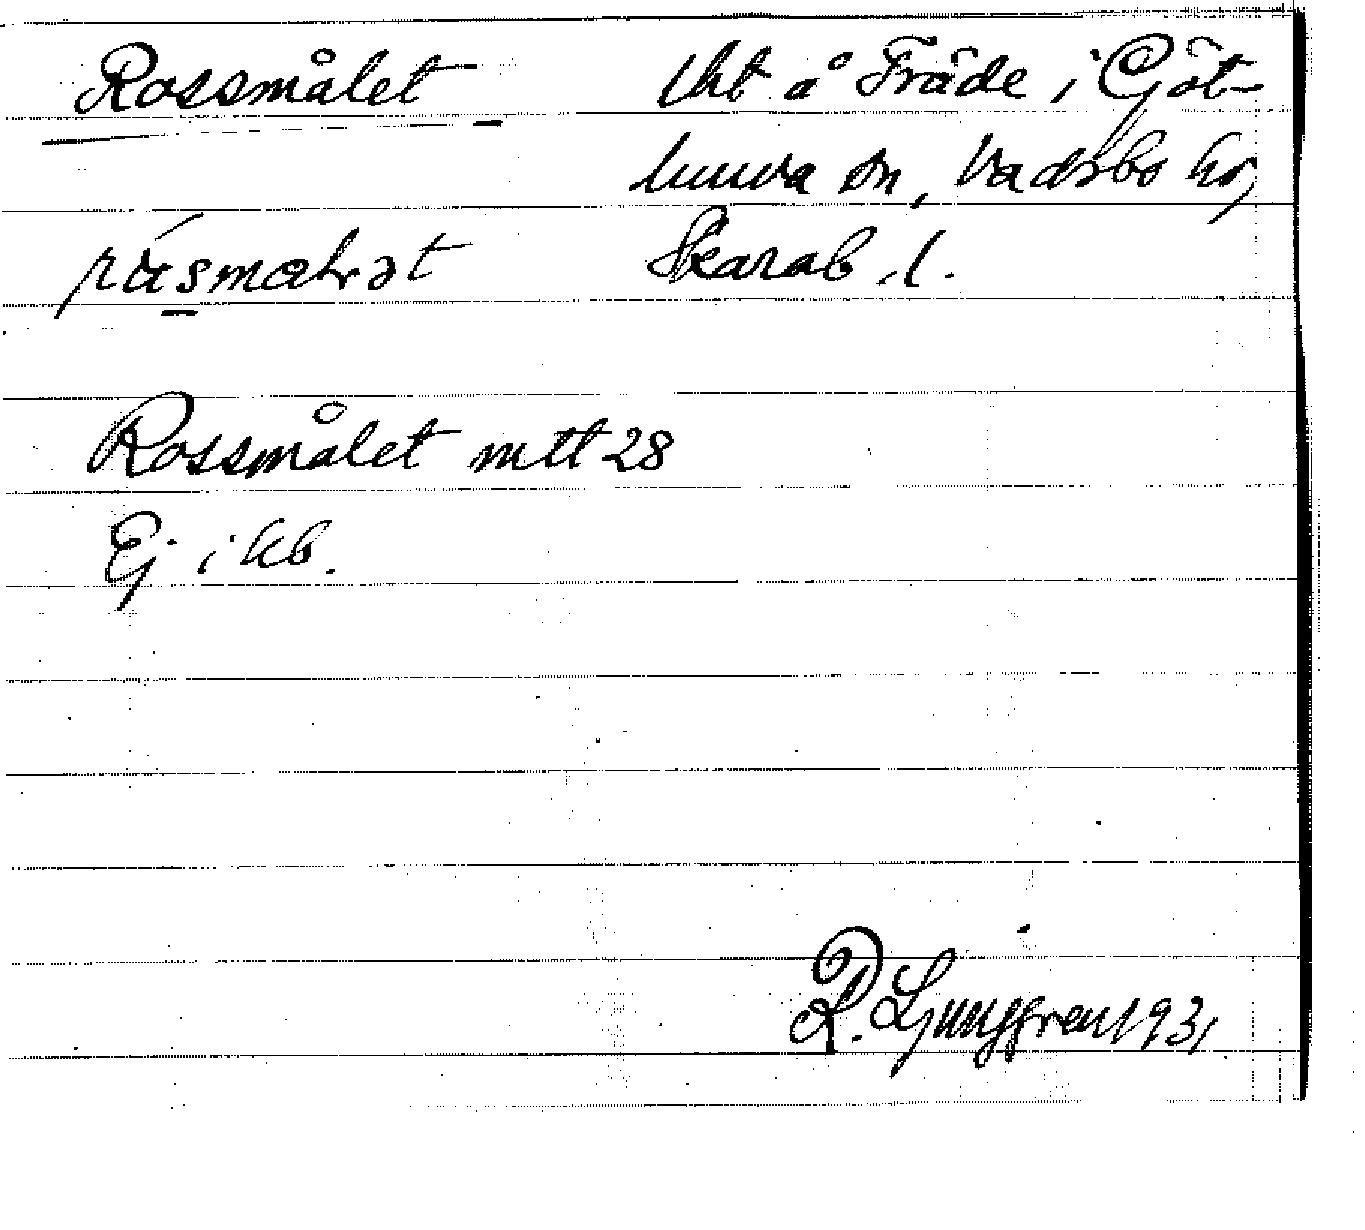 Rossmålet
lht å Fräde i Göt-
lunda sn, Vadsbo hd,
Skarab. l.
Rossmålet mtt 28
Ej i kb.
R. Ljunggren 1931